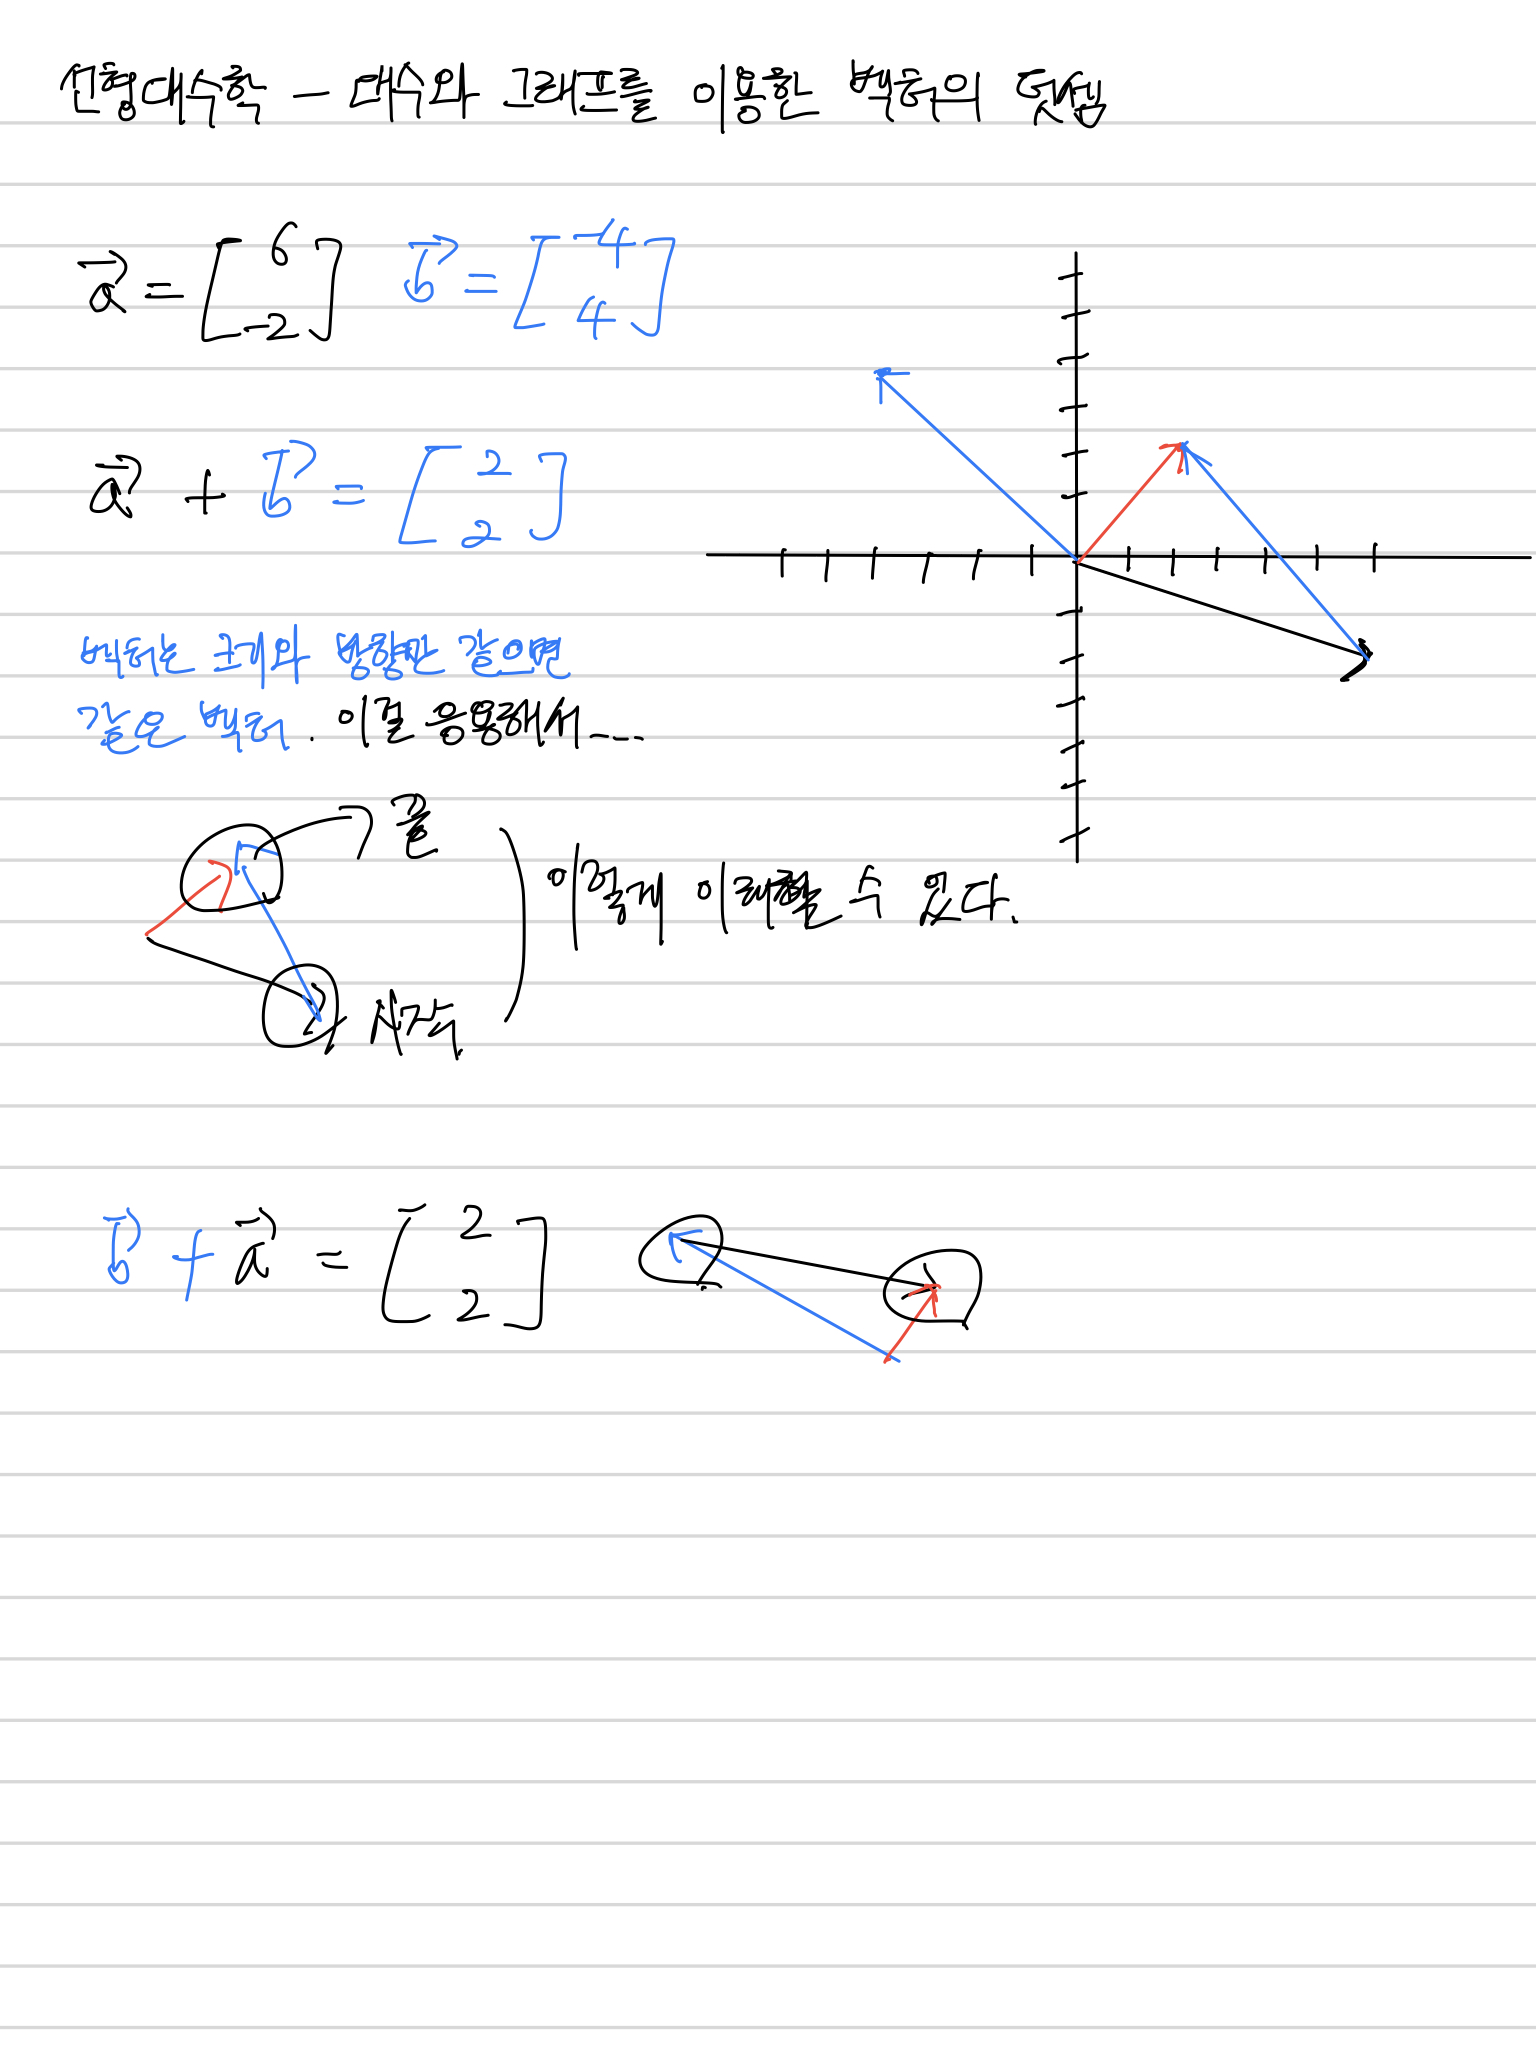 선형대수학 - 대수와 그래프를 이용한 벡터의 덧셈
a⃗ = [6 -2] b⃗ = [-4 4]
a⃗ + b⃗ = [2 2]
벡터는 크기와 방향만 같으면
같은 벡터. 이걸 응용해서....
끝
이렇게 이해할 수 있다.
시작.
b⃗ + a⃗ = [2 2]